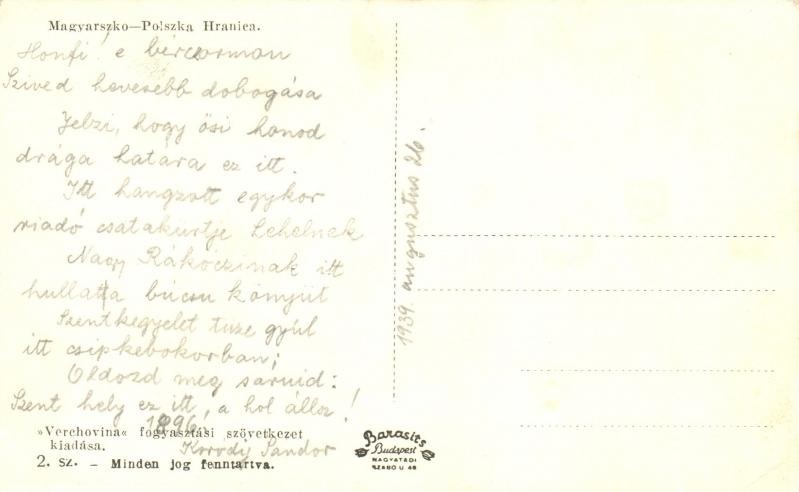 Magyarszko—Polszka Hranica.
Honfi! e bércormon
Szived hevesebb dobogása
Jelzi, hogy ősi honod
drága határa ez itt.
Itt hangzott egykor
riadó csatakürtje Lehelnek
Nagy Rákóczinak itt
hullatta búcsu könnyüt
Szentkegyelet tüze gyúl
itt csipkebokorban;
Oldozd meg saruid:
Szent hely ez itt, a hol állsz!
1896.
Korody Sándor
»Verchovina« fogyasztási szövetkezet
kiadása.
2. sz. – Minden jog fenntartva.
1939. augusztus 26.
Barasits
Budapest
NAGYATÁDI
SZABÓ U 46